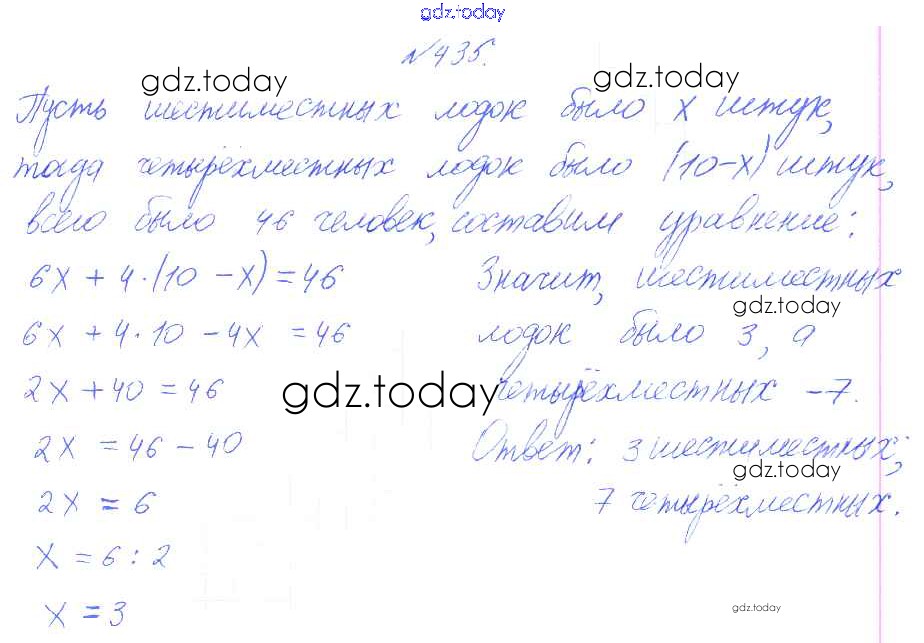 gdz.today
№435.
gdz.today gdz.today
Пусть шестиместных лодок было х штук,
тогда четырёхместных лодок было (10-х) штук,
всего было 46 человек, составим уравнение:
6х + 4·(10 - х) = 46
6х + 4·10 - 4х = 46
2х + 40 = 46
2х = 46 - 40
2х = 6
х = 6 : 2
х = 3
Значит, шестиместных
gdz.today
лодок было 3, а
gdz.today
четырёхместных - 7.
Ответ: 3 шестиместных;
gdz.today
7 четырёхместных.
gdz.today